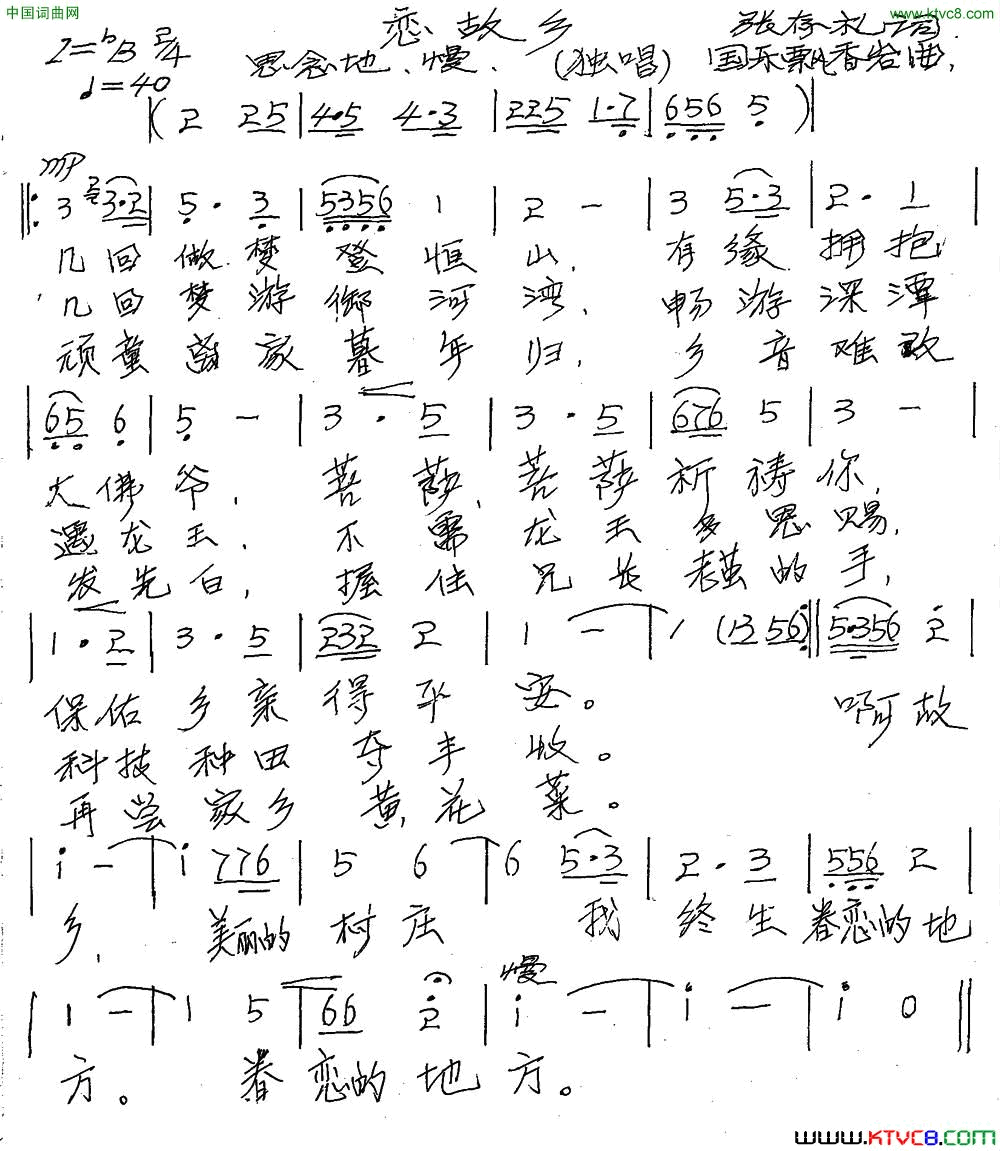 中国词曲网
www.ktvc8.com
恋故乡
张存礼词
1=♭B 2/4
思念地、慢、 (独唱) 国乐飘香岩曲,
♩=40
( 2 25 | 4·5 4·3 | 225 1·7 | 656 5 ) |
mp
‖: 3 3·2 | 5· 3 | 5356 1 | 2 - | 3 5·3 | 2· 1 |
几回做梦登恒山, 有缘拥抱
几回梦游御河湾, 畅游深潭
顽童离家暮年归, 乡音难改
| 65 6 | 5 - | 3· 5 | 3· 5 | 676 5 | 3 - |
大佛爷, 菩萨,菩萨祈祷你,
遇龙王, 不需龙王多恩赐,
发先白, 握住兄长老茧的手,
| 1· 2 | 3· 5 | 232 2 | 1 - | 1 (13 56) :‖ 5·356 2 |
保佑乡亲得平安。 啊故
科技种田夺丰收。
再尝家乡黄花菜。
| i - | i 776 | 5 6 | 6 5·3 | 2· 3 | 556 2 |
乡, 美丽的村庄 我终生眷恋的地
慢
| 1 - | 1 5 | 66 2 | i - | i - | i 0 ‖
方。 眷恋的地方。
www.KTVC8.COM